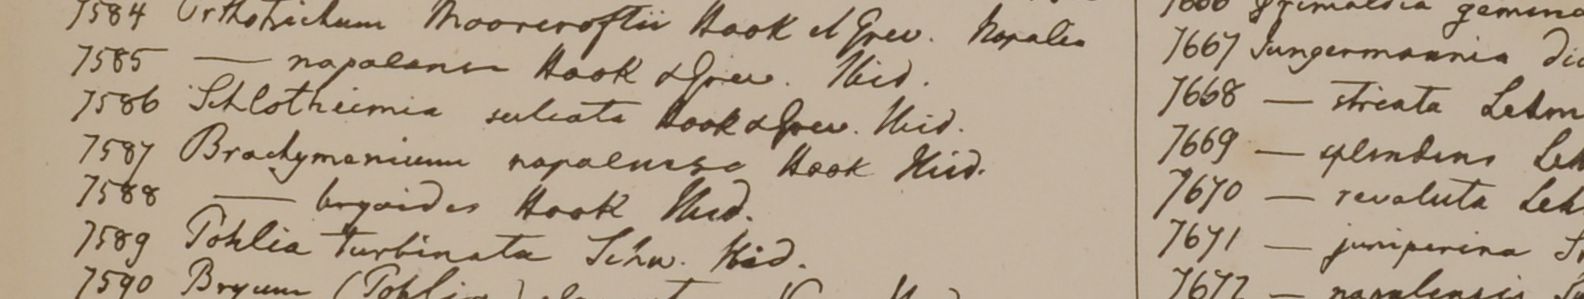 7584 Orthotrichum Moorcroftii Hook et Grev. Napalia
7585 — napalense Hook & Grev. Ibid.
7586 Schlotheimia sulcata Hook & Grev. Ibid.
7587 Brachymenium napalense Hook Ibid.
7588 — bryoides Hook Ibid.
7589 Pohlia turbinata Schw. Ibid.
7590 Bryum (Pohlia)
7666 Grimaldia
7667 Jungermannia
7668 — striata Lehm
7669 — splendens Leh
7670 — revoluta Leh
7671 — juniperina
7672 — napalensis